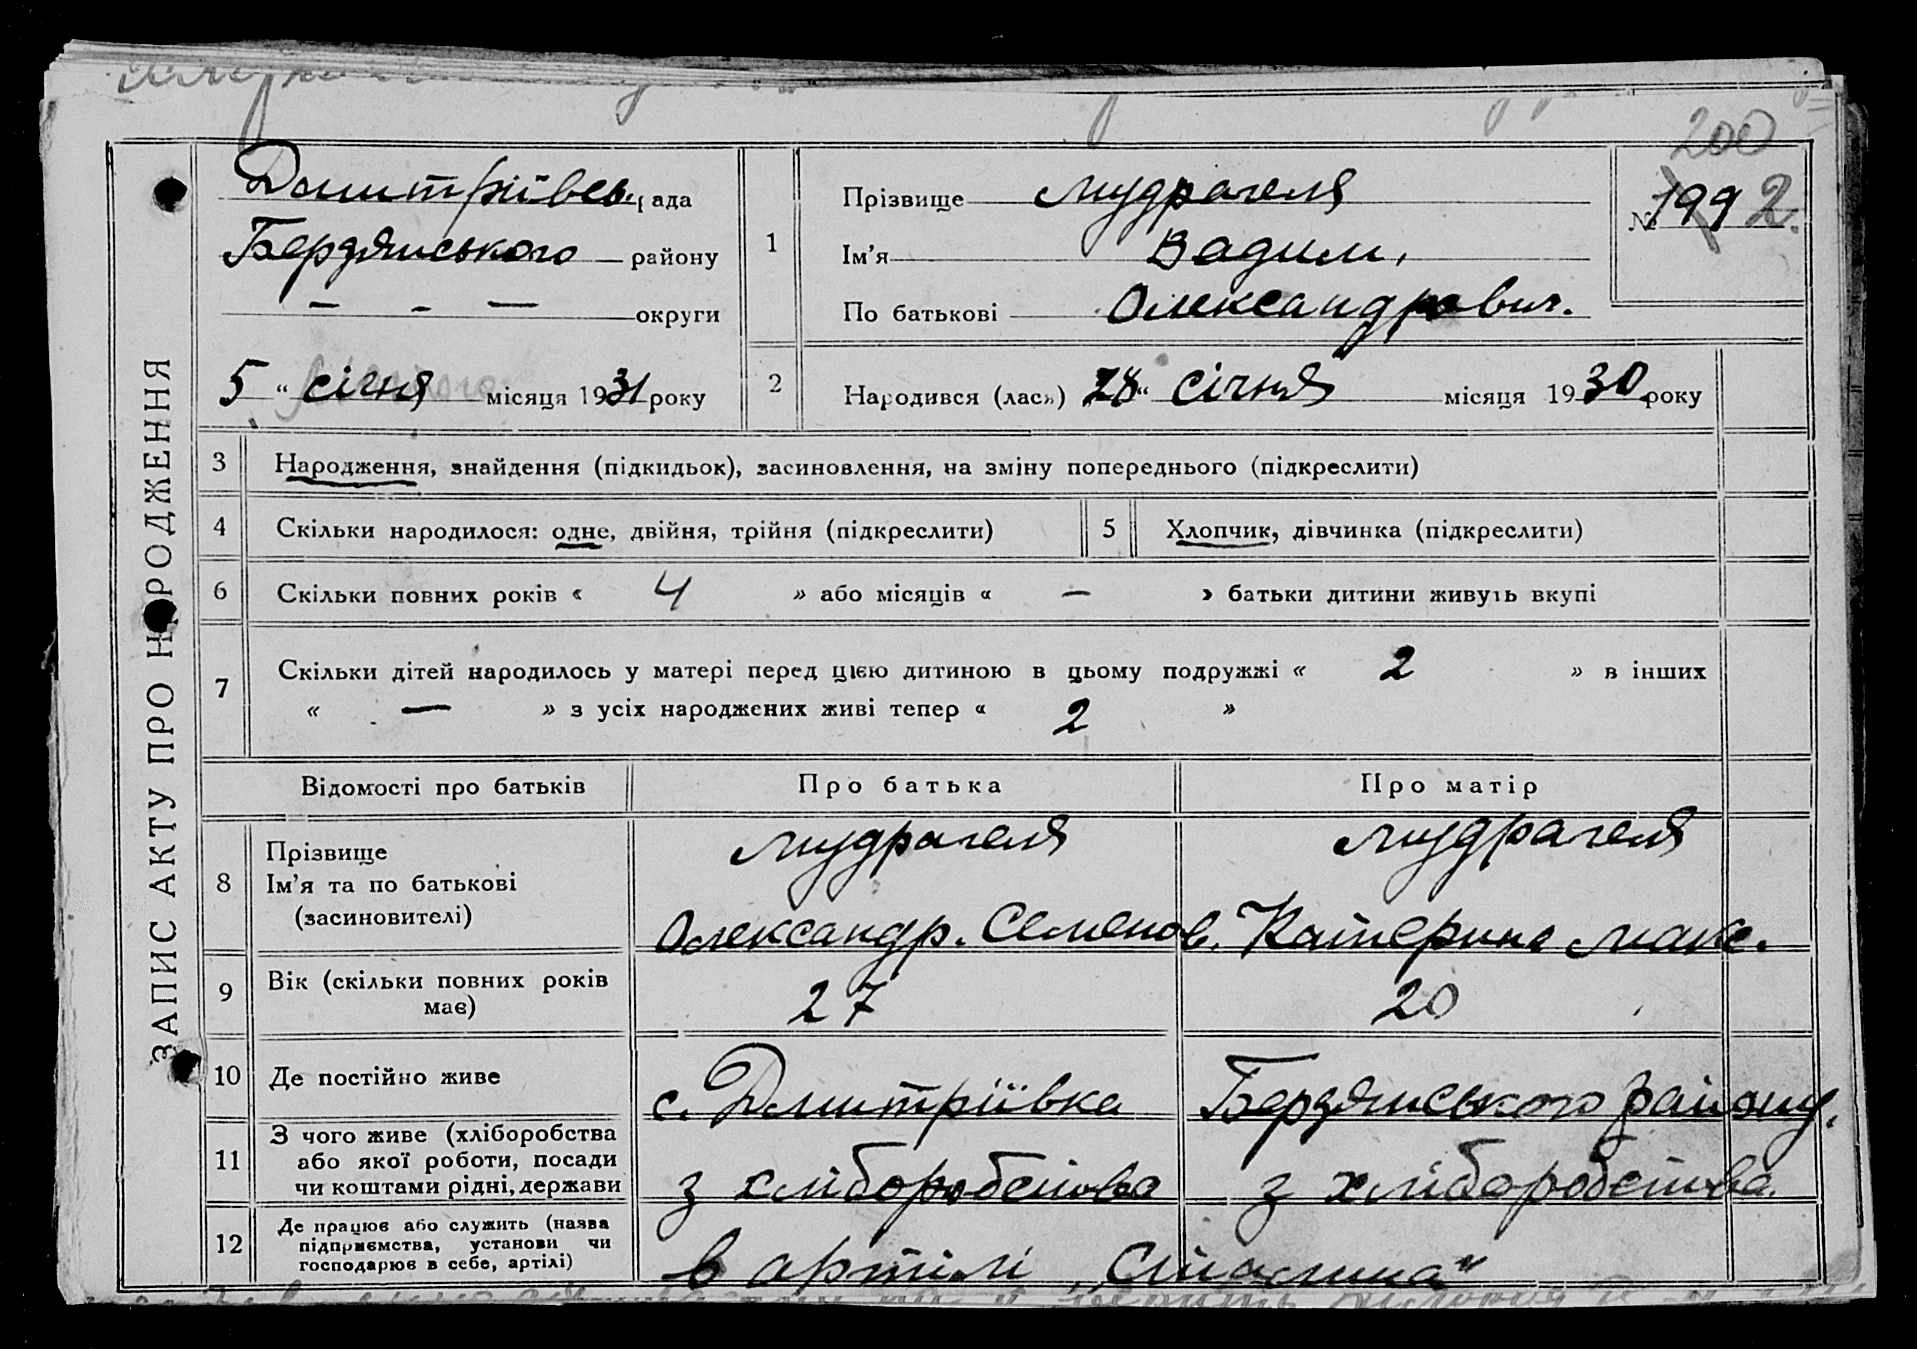 ЗАПИС АКТУ ПРО НАРОДЖЕННЯ
200
Дмитріївсь. рада
Бердянського району
— - — округи
5 “ січня місяця 1931 року
1
Прізвище Мудрагеля
Ім'я Вадим,
По батькові Олександрович.
№ 199 2.
2
Народився (лась) 28 “ січня місяця 1930 року
3 Народження, знайдення (підкидьок), засиновлення, на зміну попереднього (підкреслити)
4 Скільки народилося: одне, двійня, трійня (підкреслити) 5 Хлопчик, дівчинка (підкреслити)
6 Скільки повних років « 4 » або місяців « — » батьки дитини живуть вкупі
7 Скільки дітей народилось у матері перед цією дитиною в цьому подружжі « 2 » в інших
« — » з усіх народжених живі тепер « 2 »
Відомості про батьків Про батька Про матір
8 Прізвище
Ім'я та по батькові
(засиновителі)
Мудрагеля Мудрагеля
Олександр. Семенов. Катерина Макс.
9 Вік (скільки повних років
має)
27 20
10 Де постійно живе с. Дмитріївка Бердянського району.
11 З чого живе (хліборобства
або якої роботи, посади
чи коштами рідні, держави
з хліборобства з хліборобства
12 Де працює або служить (назва
підприємства, установи чи
господарює в себе, артілі)
в артілі